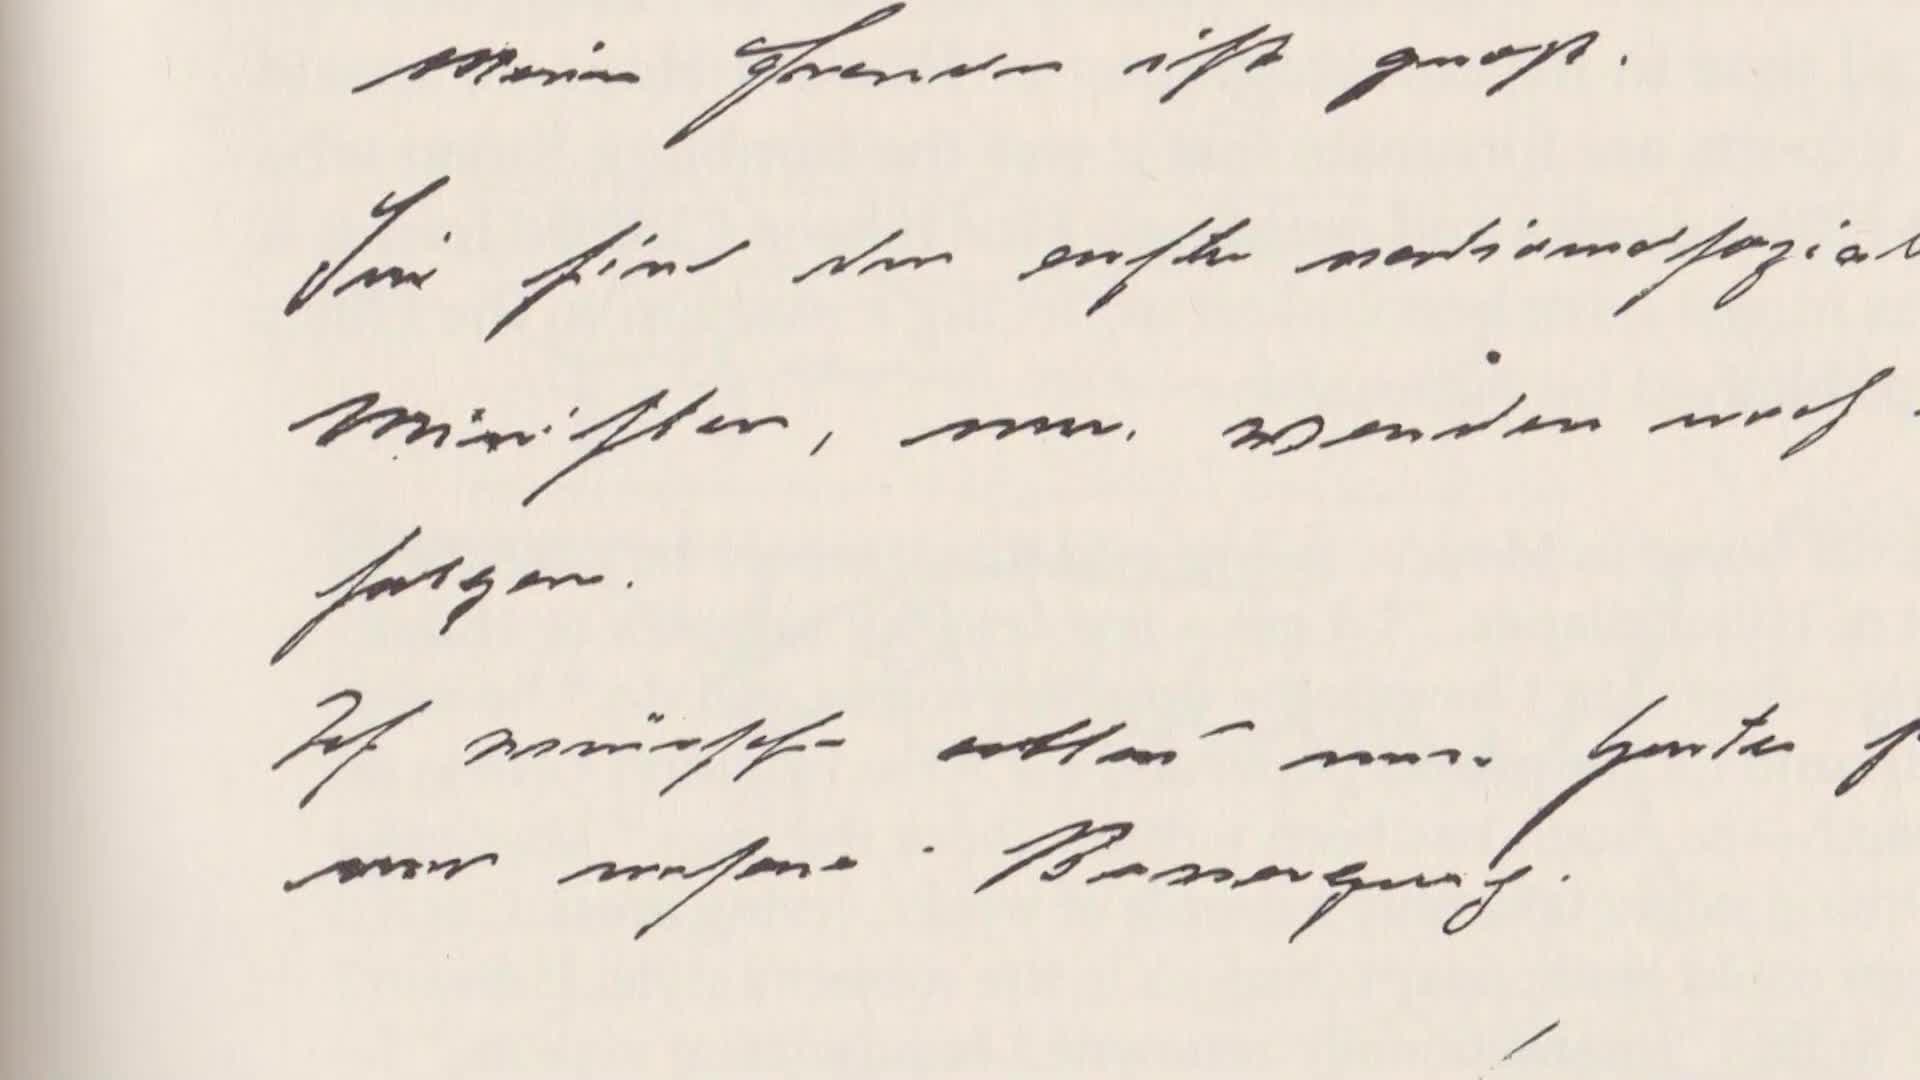 Meine Freude ist groß.
Sie sind der erste nationalsozial
Minister, nun werden noch
folgen.
Ich wünsche Gutes f
unsere Bewegung.